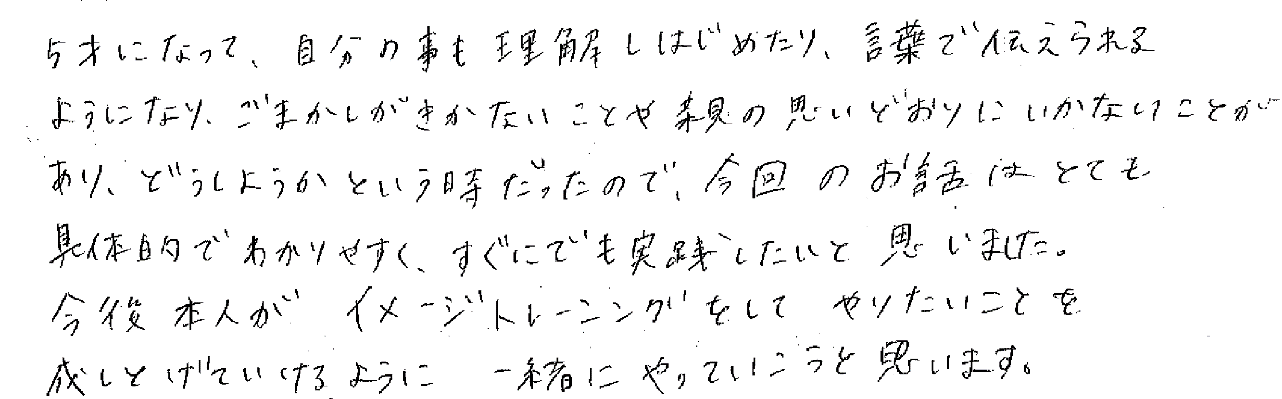 5才になって、自分の事も理解しはじめたり、言葉で伝えられる
ようになり、ごまかしがきかないことや親の思いどおりにいかないことが
あり、どうしようかという時だったので、今回のお話はとても
具体的でわかりやすく、すぐにでも実践したいと思いました。
今後本人がイメージトレーニングをしてやりたいことを
成しとげていけるように一緒にやっていこうと思います。